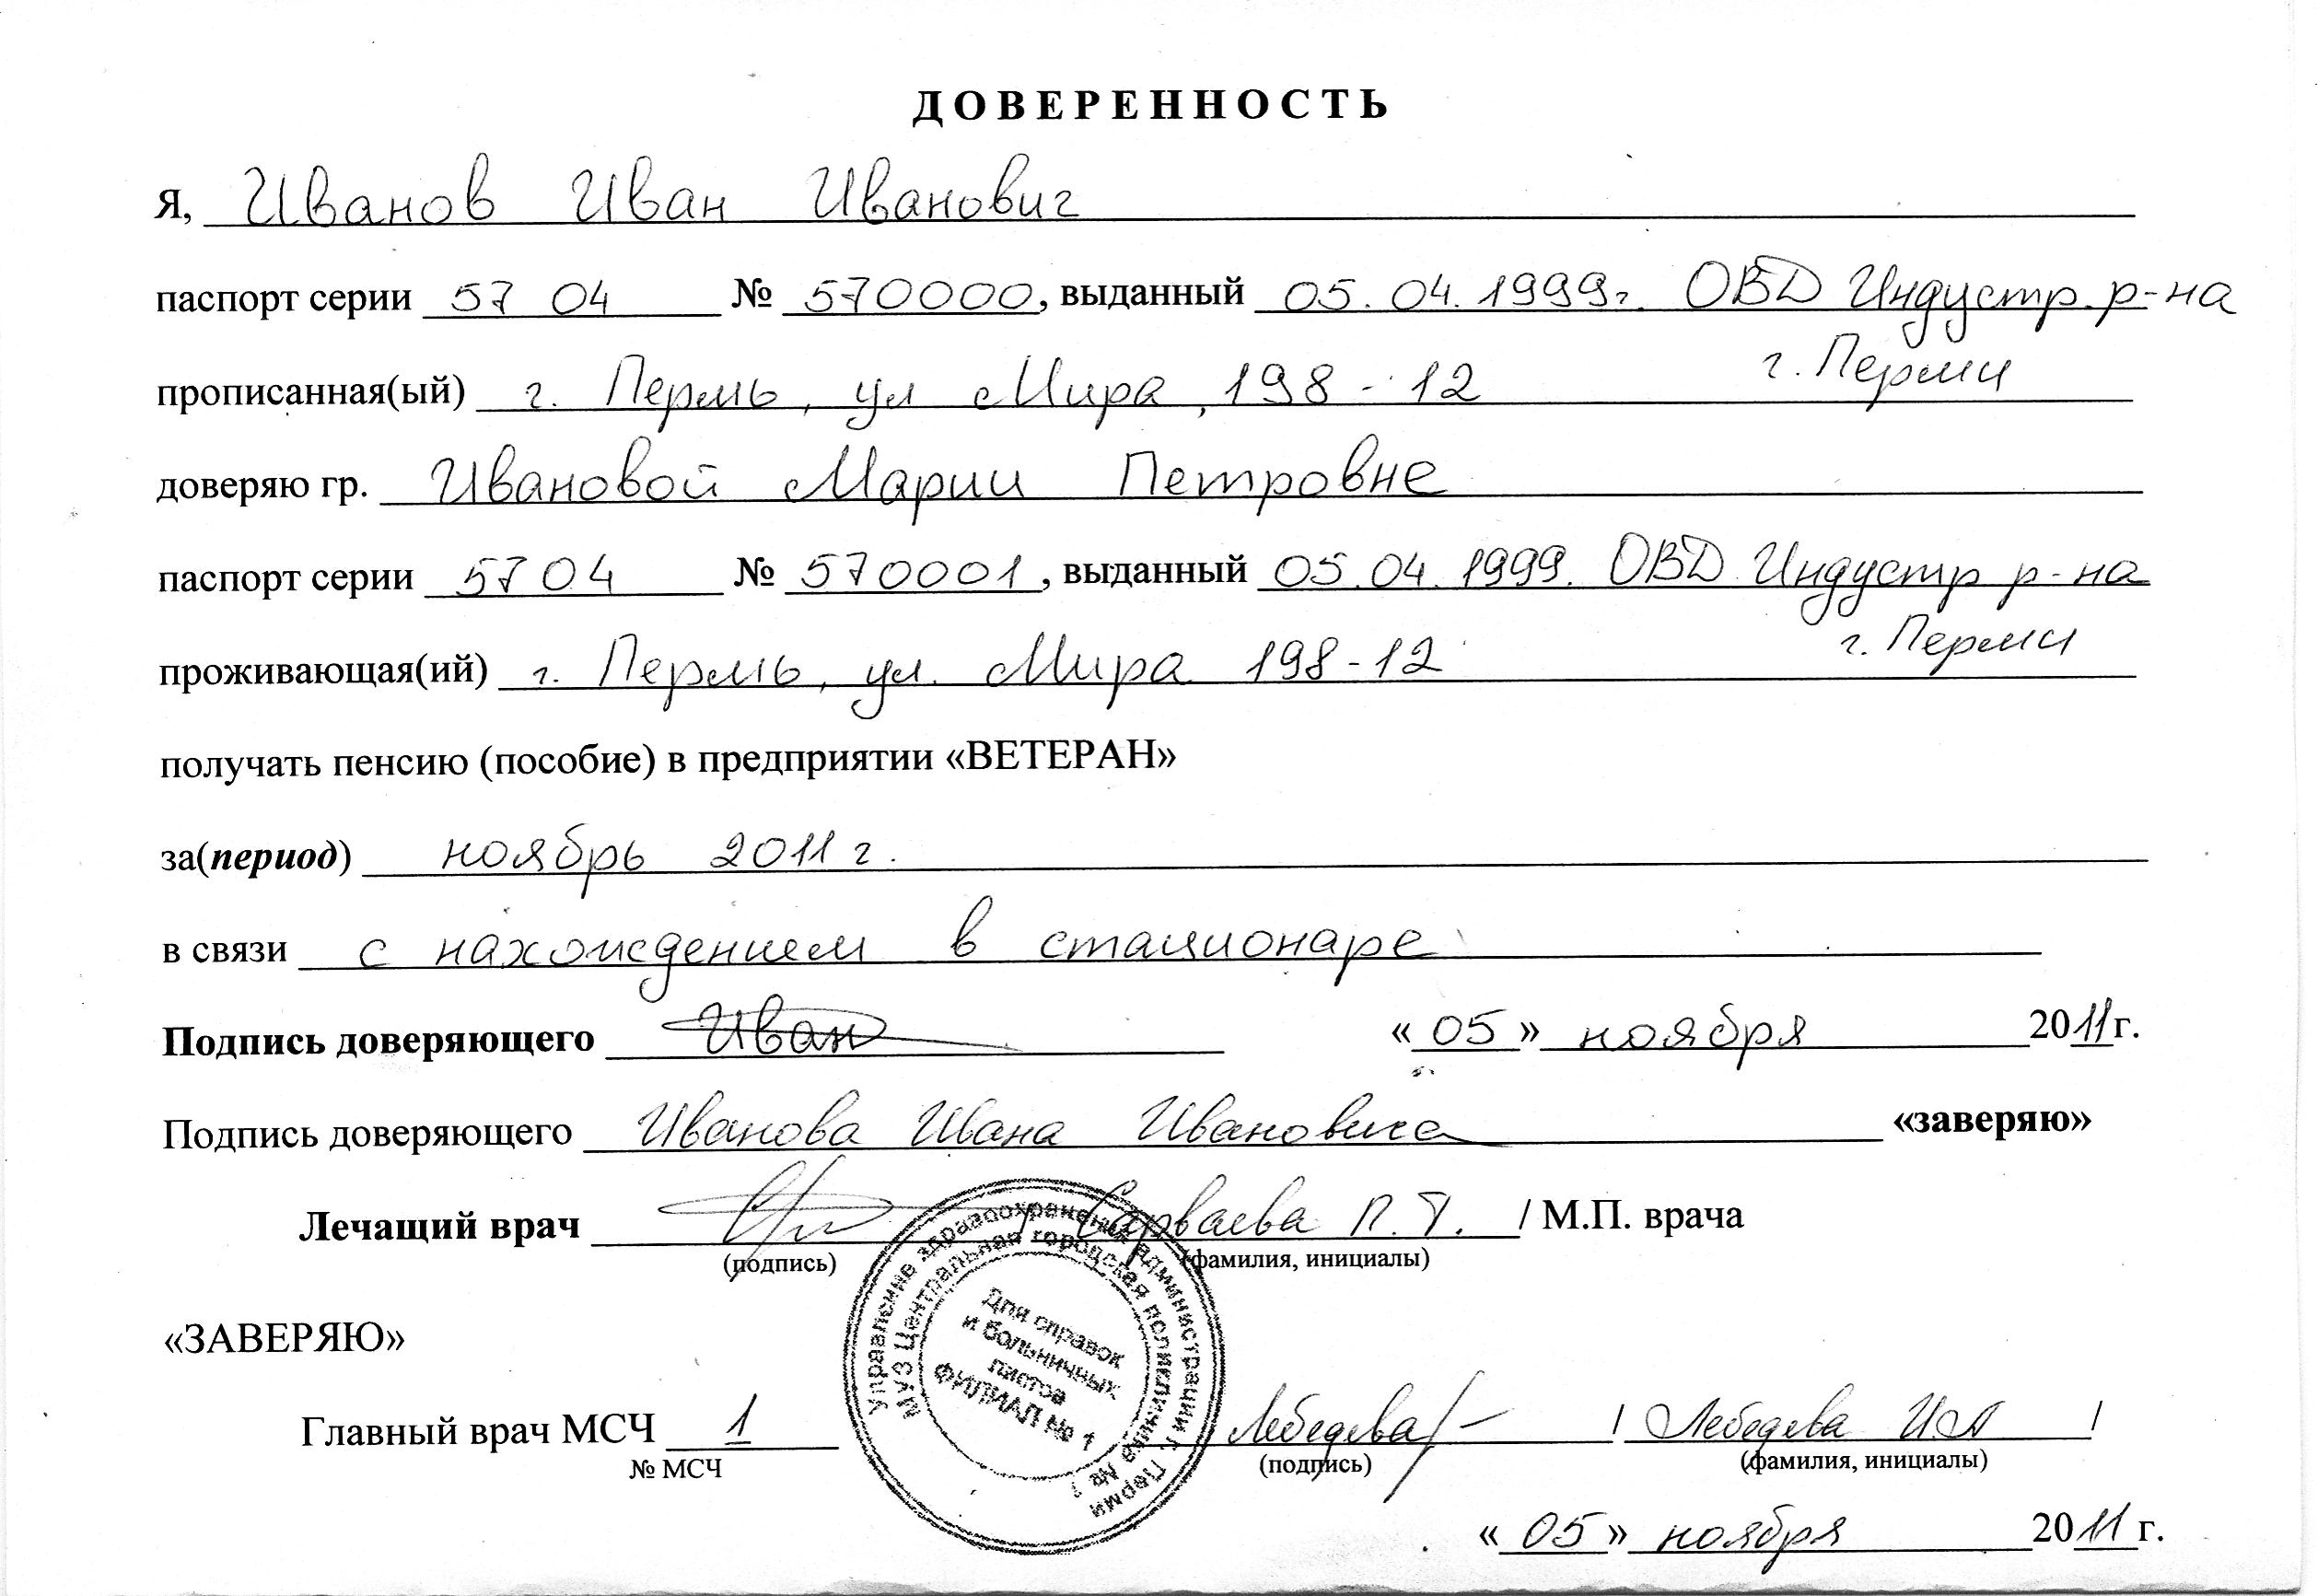 ДОВЕРЕННОСТЬ
Я, Иванов Иван Иванович
паспорт серии 57 04 № 570000, выданный 05.04.1999г. ОВД Индустр. р-на
г. Перми
прописанная(ый) г. Пермь, ул Мира, 198 - 12
доверяю гр. Ивановой Марии Петровне
паспорт серии 5704 № 570001, выданный 05.04.1999. ОВД Индустр р-на
г. Перми
проживающая(ий) г. Пермь, ул. Мира 198-12
получать пенсию (пособие) в предприятии «ВЕТЕРАН»
за(период) ноябрь 2011 г.
в связи с нахождением в стационаре
Подпись доверяющего Иван «05» ноября 2011г.
Подпись доверяющего Иванова Ивана Ивановича «заверяю»
Лечащий врач / П.Т. / М.П. врача
(подпись) (фамилия, инициалы)
Управление здравоохранения администрации г. Перми
МУЗ Центральная городская поликлиника №
Для справок
и больничных
листов
ФИЛИАЛ № 1
«ЗАВЕРЯЮ»
Главный врач МСЧ 1 Лебедева / Лебедева И.А /
№ МСЧ (подпись) (фамилия, инициалы)
«05» ноября 2011г.